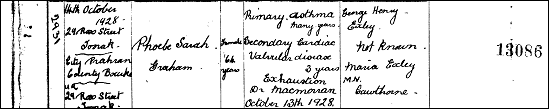 14th October
1928
29 Ross Street
Toorak
City Prahran
County Bourke
29 Ross Street
Toorak
Phoebe Sarah
Graham
Female
66
years
Primary Asthma
Many years
Secondary Cardiac
Valvular disease
3 years
Exhaustion
Dr Macmorran
October 13th 1928
George Henry
Exley
Not Known
Maria Exley
M.N.
Cawthorne
13086